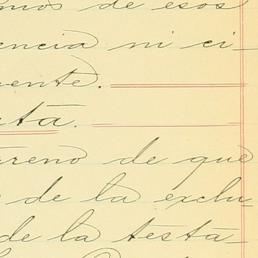 mos de esos
encia ni ci-
mente.
ta.
terreno de que
de la exclu-
de la testa-